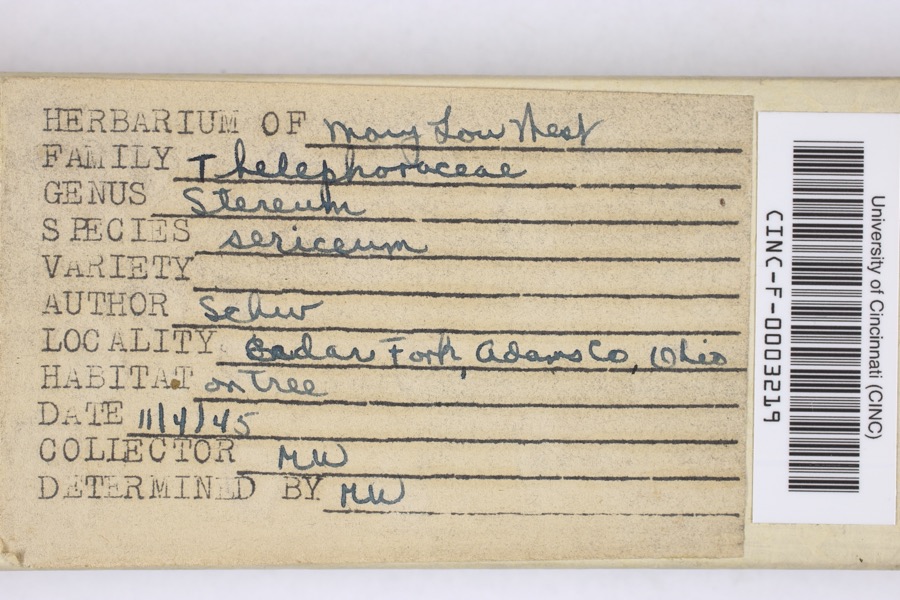 HERBARIUM OF Mary Lou West
FAMILY Thelephoraceae
GENUS Stereum
SPECIES sericeum
VARIETY
AUTHOR Schw
LOCALITY Cedar Fork, Adams Co, Ohio
HABITAT on tree
DATE 11/4/45
COLLECTOR MW
DETERMINED BY MW
University of Cincinnati (CINC)
CINC-F-0003219